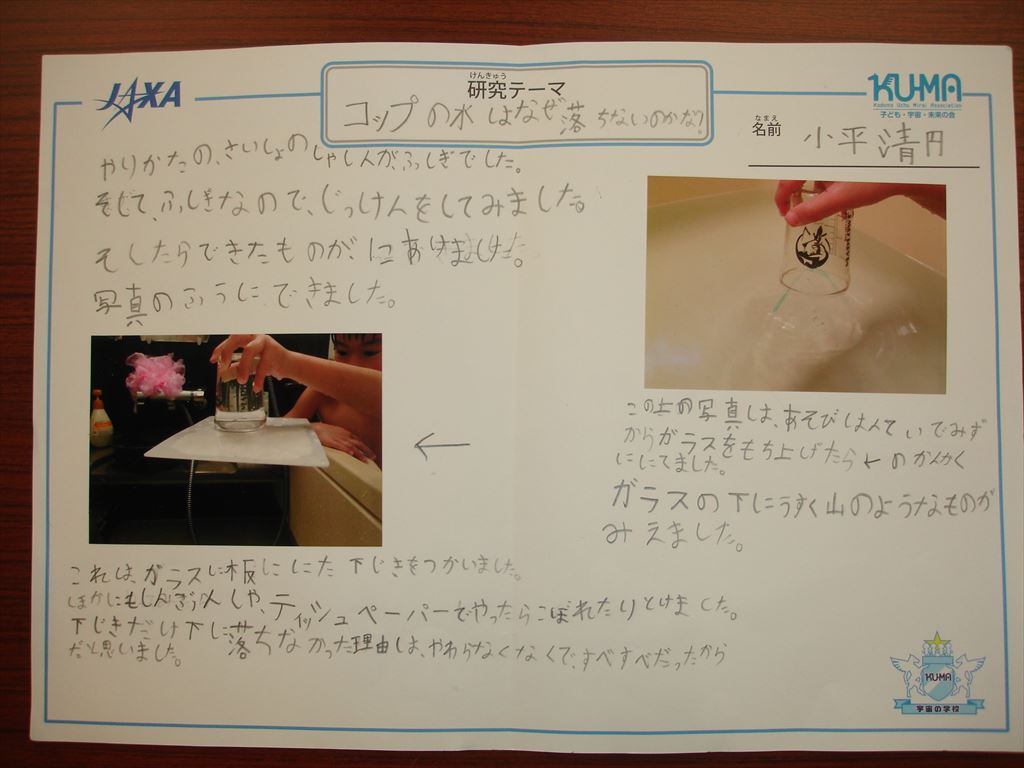 JAXA
けんきゅう
研究テーマ
コップの水はなぜ落ちないのかな?
KU-MA
Kodomo Uchu Mirai Association
子ども・宇宙・未来の会
なまえ
名前 小平清円
やりかたの、さいしょのしゃしんがふしぎでした。
そして、ふしぎなので、じっけんをしてみました。
そしたらできたものが、にあげました。
写真のふうにできました。
この上の写真は、あそびはんていでみず
からガラスをもち上げたら←のかんかく
ににてました。
ガラスの下にうすく山のようなものが
みえました。
←
これは、ガラスに板ににた下じきをつかいました。
ほかにもしんぶんしや、ティッシュペーパーでやったらこぼれたりとけました。
下じきだけ下に落ちなかった理由は、やわらなくなくて、すべすべだったから
だと思いました。
KU-MA
宇宙の学校